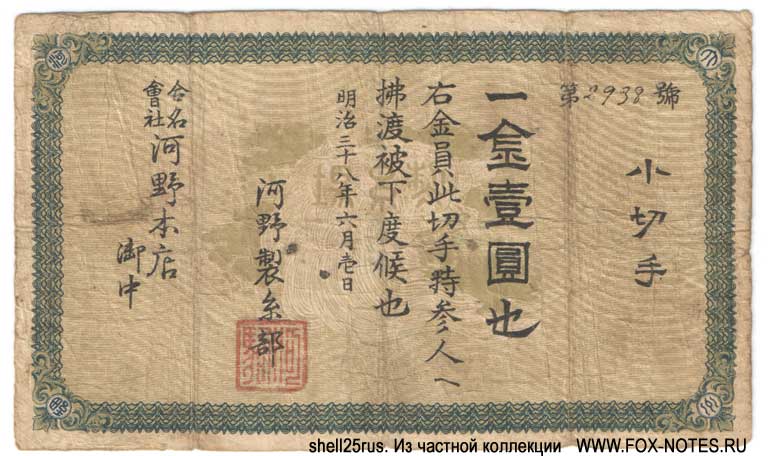 第2938號
小切手
一金壹圓也
右金員此切手持参人ヘ
拂渡被下度候也
明治三十八年六月壱日
河野製糸部
合名會社 河野本店
御中
shell25rus. Из частной коллекции WWW.FOX-NOTES.RU